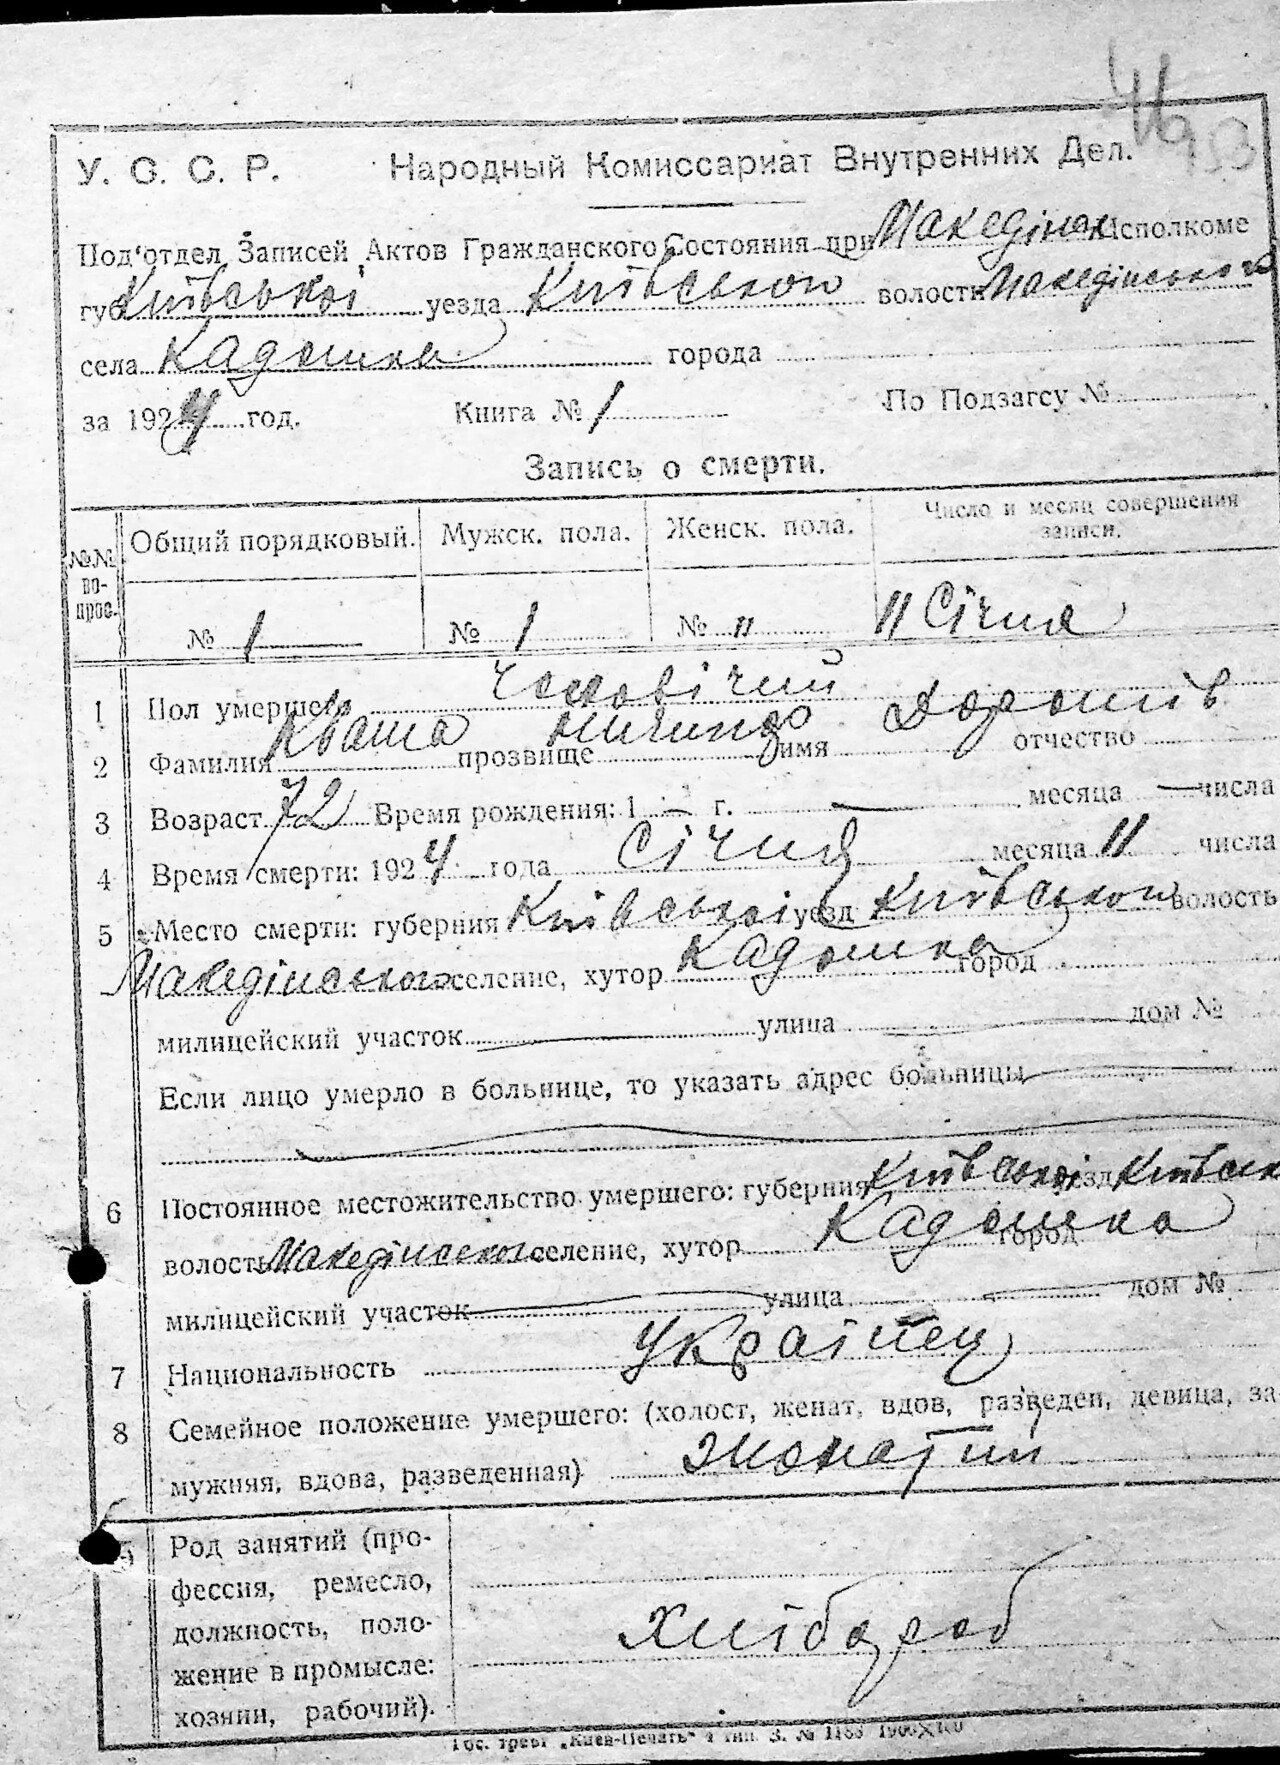 У. С. С. Р. Народный Комиссариат Внутренних Дел.
Под'отдел Записей Актов Гражданского Состояния при Македінськ Исполкоме
губ. Київської уезда Київської волости Македінської
села Кадомка города
за 1924 год. Книга № 1 По Подзагсу №
Запись о смерти.
№№ вопрос. Общий порядковый. Мужск. пола. Женск. пола. Число и месяц совершения записи.
№ 1 № 1 № " 11 Січня
1 Пол умершего Чоловічий
2 Фамилия Кваша прозвище имя отчество
3 Возраст 72 Время рождения: 1 — г. — месяца — числа
4 Время смерти: 1924 года Січня месяца 11 числа
5 Место смерти: губерния Київської уезд Київської волость
Македінської селение, хутор Кадомка город
милицейский участок — улица — дом №
Если лицо умерло в больнице, то указать адрес больницы —
6 Постоянное местожительство умершего: губерния Київської уезд Київськ
волость Македінської селение, хутор Кадомка город
милицейский участок — улица — дом №
7 Национальность Українец
8 Семейное положение умершего: (холост, женат, вдов, разведен, девица, за-
мужняя, вдова, разведенная) жонатий
9 Род занятий (про-
фессия, ремесло,
должность, поло-
жение в промысле:
хозяин, рабочий).
Хлібороб
Гос. трест „Киев-Печать" 4 тип. З. № 1188 1900×100